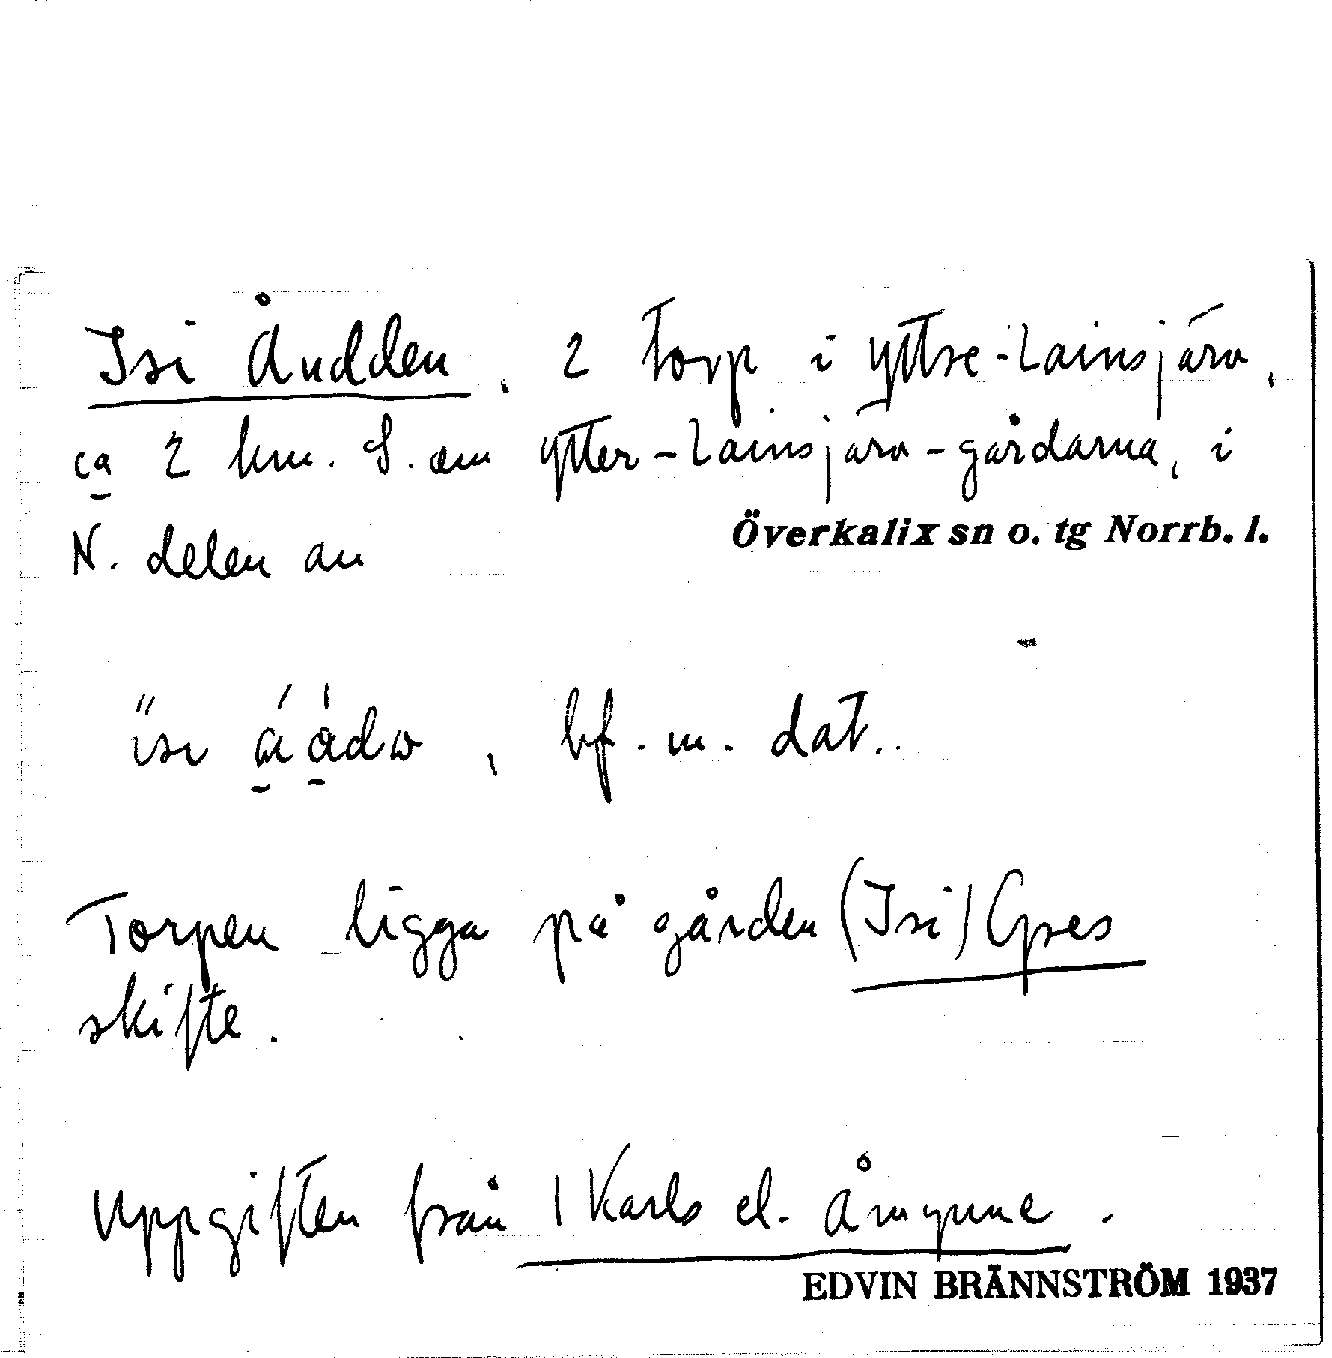 Isi Åudden, 2 torp i Yttre-Lainsjärv,
ca 2 km. S. om Ytter-Lainsjärv-gårdarna, i
N. delen av Överkalix sn o. tg Norrb. l.
bf. m. dat.
Torpen ligga på gården (Isi) Gpes
skifte.
Uppgiften från I Karls el. Åmynne.
EDVIN BRÄNNSTRÖM 1937